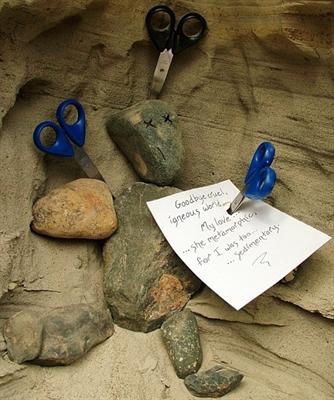 Goodbye cruel,
igneous world...
My love
...she metamorphic...
for I was too...
...sedimentary.